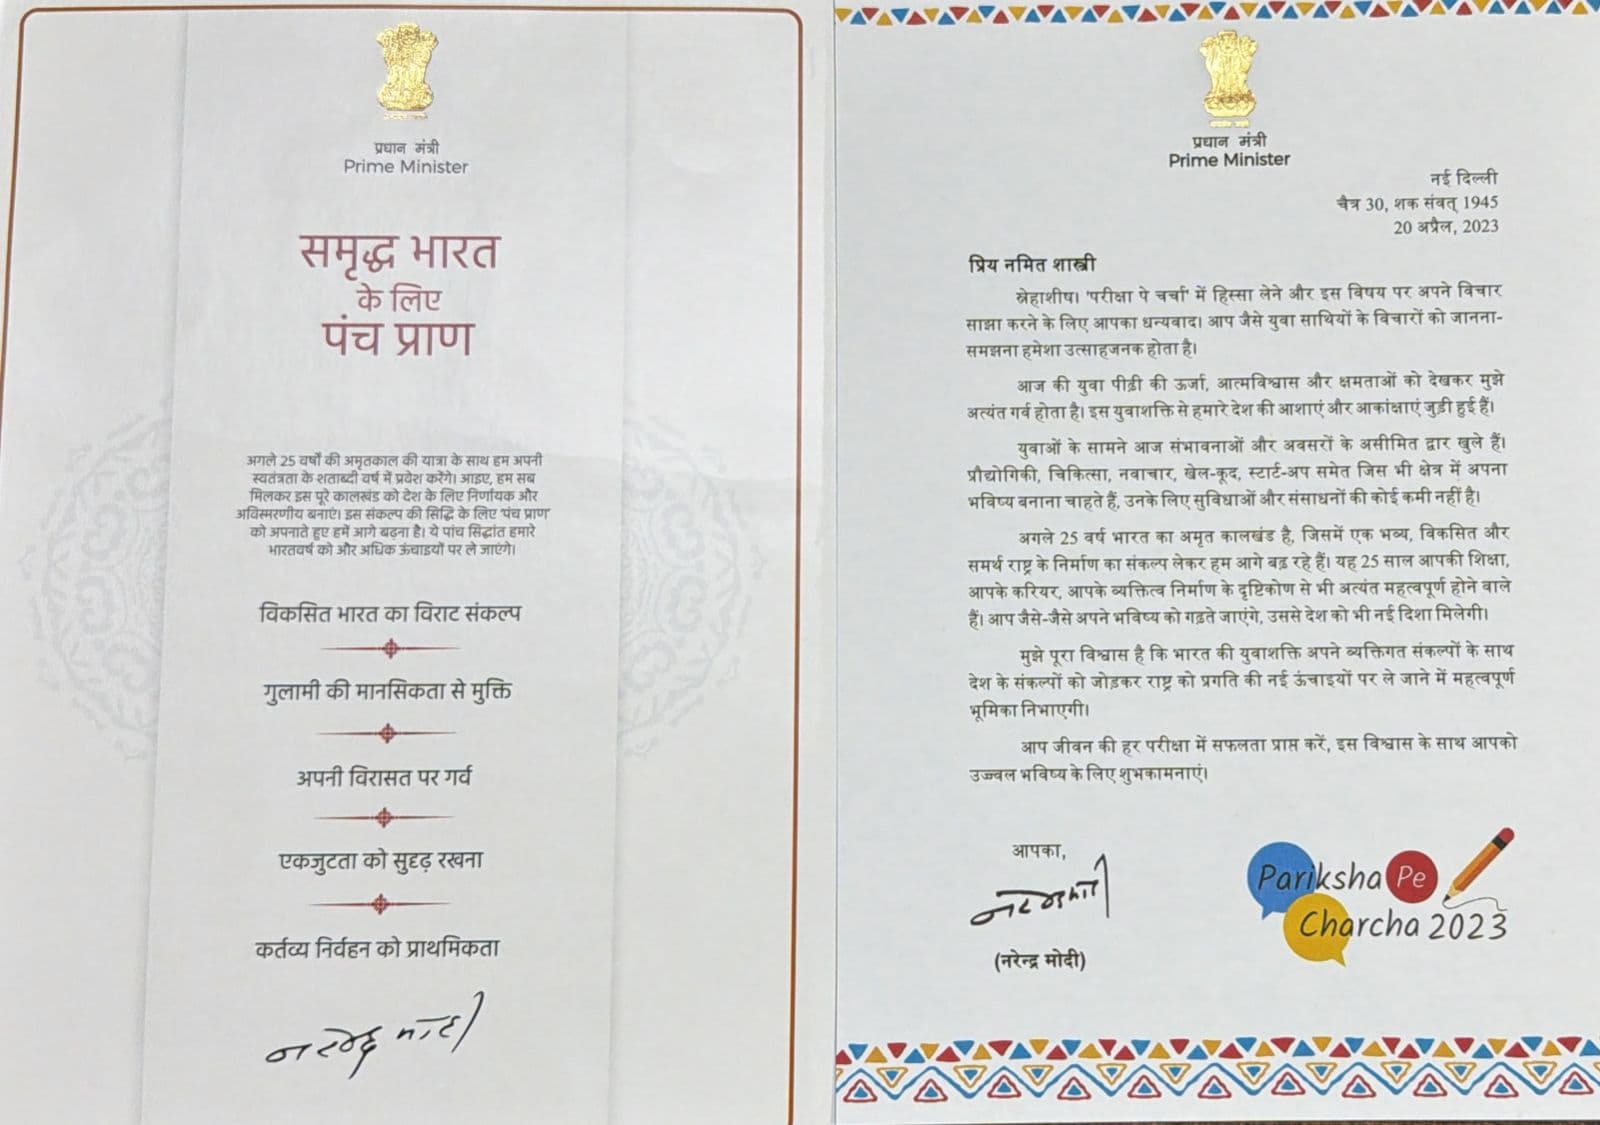 प्रधान मंत्री
Prime Minister
समृद्ध भारत
के लिए
पंच प्राण
अगले 25 वर्षों की अमृतकाल की यात्रा के साथ हम अपनी
स्वतंत्रता के शताब्दी वर्ष में प्रवेश करेंगे। आइए, हम सब
मिलकर इस पूरे कालखंड को देश के लिए निर्णायक और
अविस्मरणीय बनाएं। इस संकल्प की सिद्धि के लिए 'पंच प्राण'
को अपनाते हुए हमें आगे बढ़ना है। ये पांच सिद्धांत हमारे
भारतवर्ष को और अधिक ऊंचाइयों पर ले जाएंगे।
विकसित भारत का विराट संकल्प
गुलामी की मानसिकता से मुक्ति
अपनी विरासत पर गर्व
एकजुटता को सुदृढ़ रखना
कर्तव्य निर्वहन को प्राथमिकता
नरेन्द्र मोदी
प्रधान मंत्री
Prime Minister
नई दिल्ली
चैत्र 30, शक संवत् 1945
20 अप्रैल, 2023
प्रिय नमित शास्त्री
स्नेहाशीष। 'परीक्षा पे चर्चा' में हिस्सा लेने और इस विषय पर अपने विचार
साझा करने के लिए आपका धन्यवाद। आप जैसे युवा साथियों के विचारों को जानना-
समझना हमेशा उत्साहजनक होता है।
आज की युवा पीढ़ी की ऊर्जा, आत्मविश्वास और क्षमताओं को देखकर मुझे
अत्यंत गर्व होता है। इस युवाशक्ति से हमारे देश की आशाएं और आकांक्षाएं जुड़ी हुई हैं।
युवाओं के सामने आज संभावनाओं और अवसरों के असीमित द्वार खुले हैं।
प्रौद्योगिकी, चिकित्सा, नवाचार, खेल-कूद, स्टार्ट-अप समेत जिस भी क्षेत्र में अपना
भविष्य बनाना चाहते हैं, उनके लिए सुविधाओं और संसाधनों की कोई कमी नहीं है।
अगले 25 वर्ष भारत का अमृत कालखंड है, जिसमें एक भव्य, विकसित और
समर्थ राष्ट्र के निर्माण का संकल्प लेकर हम आगे बढ़ रहे हैं। यह 25 साल आपकी शिक्षा,
आपके करियर, आपके व्यक्तित्व निर्माण के दृष्टिकोण से भी अत्यंत महत्वपूर्ण होने वाले
हैं। आप जैसे-जैसे अपने भविष्य को गढ़ते जाएंगे, उससे देश को भी नई दिशा मिलेगी।
मुझे पूरा विश्वास है कि भारत की युवाशक्ति अपने व्यक्तिगत संकल्पों के साथ
देश के संकल्पों को जोड़कर राष्ट्र को प्रगति की नई ऊंचाइयों पर ले जाने में महत्वपूर्ण
भूमिका निभाएगी।
आप जीवन की हर परीक्षा में सफलता प्राप्त करें, इस विश्वास के साथ आपको
उज्ज्वल भविष्य के लिए शुभकामनाएं।
आपका,
नरेन्द्र मोदी
(नरेन्द्र मोदी)
Pariksha Pe
Charcha 2023